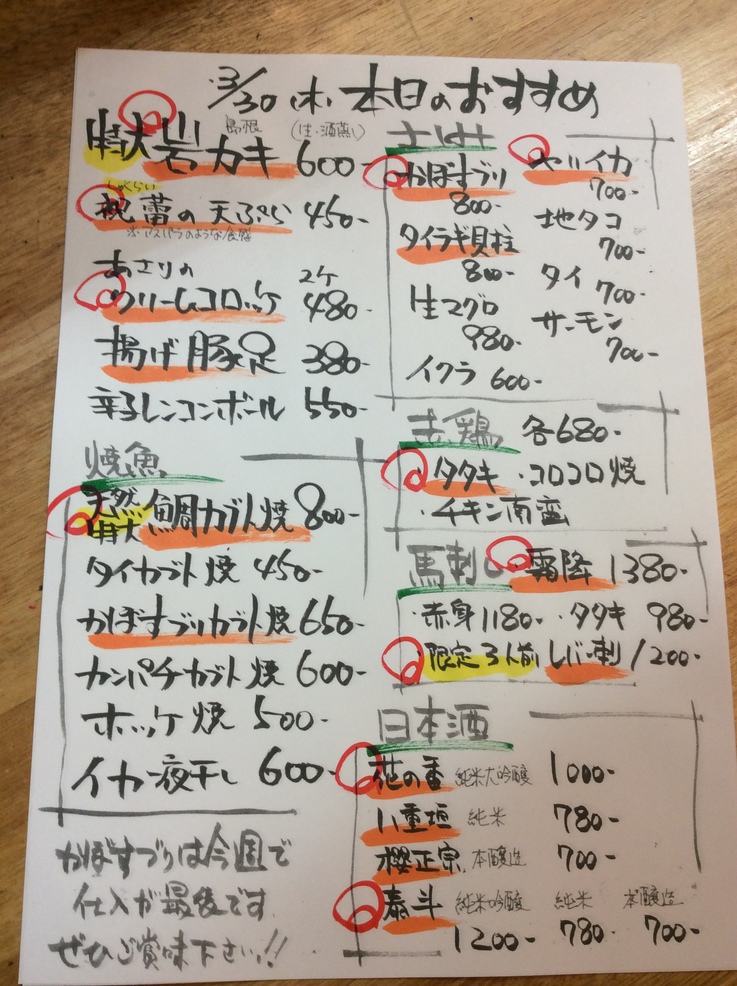 3/30(木)本日のおすすめ
島根 (生・酒蒸し)
特大岩カキ 600-
しゅくらい
祝蕾の天ぷら 450-
※アスパラのような食感
あさりの 2ケ
クリームコロッケ 480-
揚げ豚足 380-
辛子レンコンボール 550-
焼魚
天然特大鯛カブト焼 800-
タイカブト焼 450-
かぼすブリカブト焼 650-
カンパチカブト焼 600-
ホッケ焼 500-
イカ一夜干し 600-
かぼすブリは今週で
仕入が最後です
ぜひご賞味下さいっ!!
さしみ
かぼすブリ
800-
タイラギ貝柱
800-
生マグロ
980-
イクラ 600-
ヤリイカ
700-
地タコ
700-
タイ 700-
サーモン
700-
赤鶏 各680-
・タタキ ・コロコロ焼
・チキン南蛮
馬刺し ・霜降 1380-
・赤身 1180- ・タタキ 980-
・限定3人前 レバー刺 1200-
日本酒
花の香 純米大吟醸 1000-
八重垣 純米 780-
櫻正宗 本醸造 700-
泰斗 純米吟醸 純米 本醸造
1200- 780- 700-